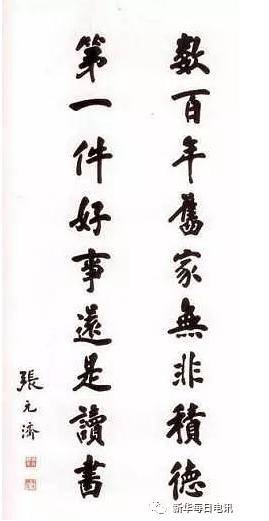 数百年舊家無非積德
第一件好事還是讀書
張元濟
新华每日电讯